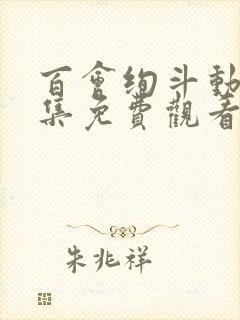 百會绚斗動
集免費觀看
朱兆祥